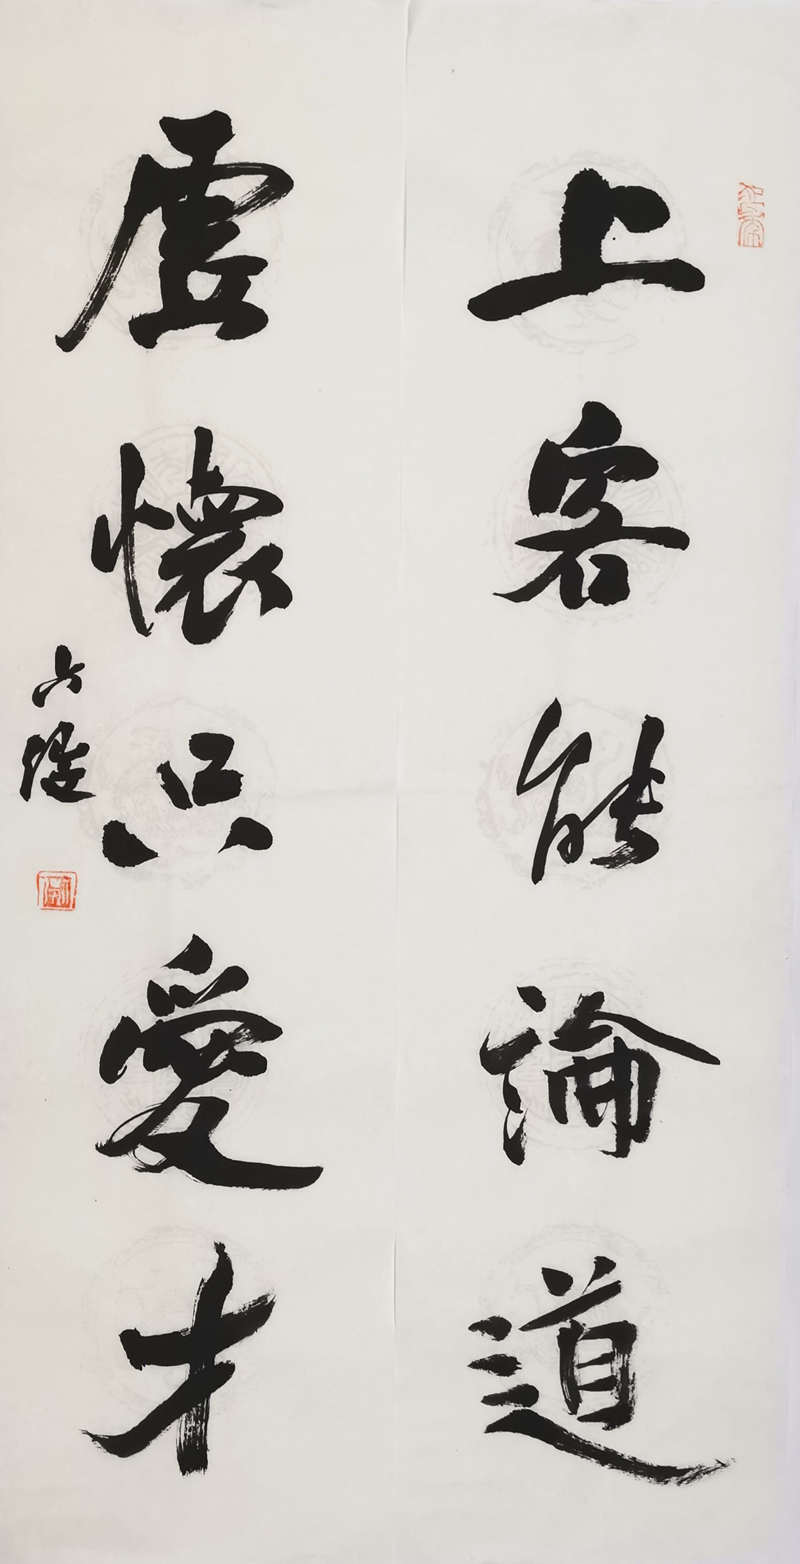 上客能論道
虛懷只愛才